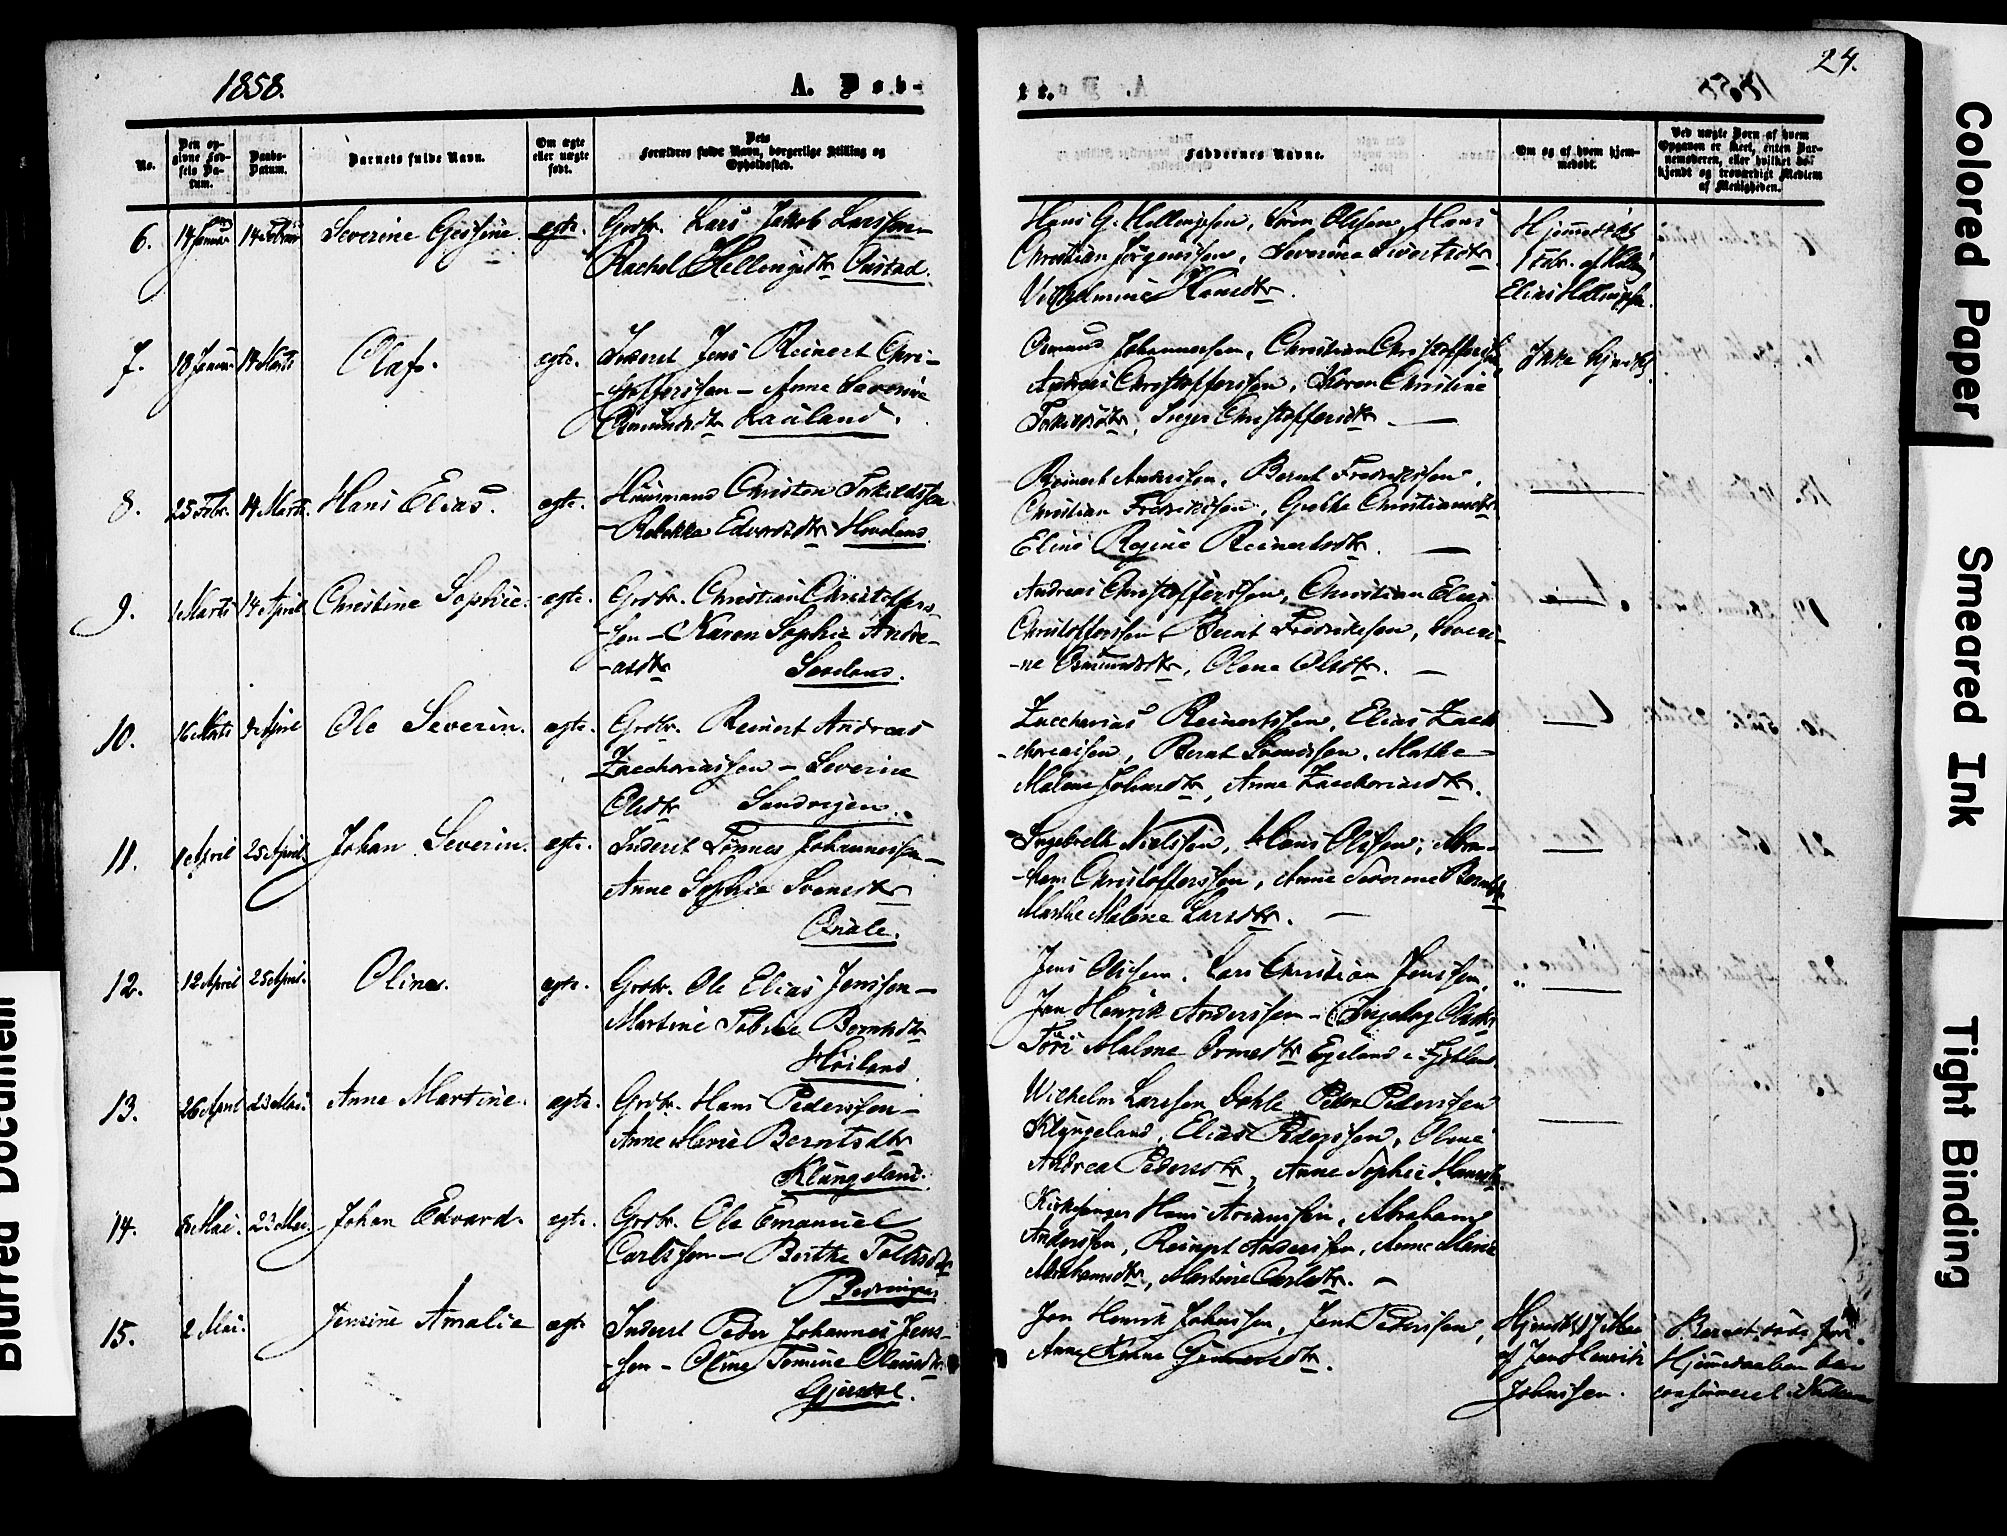 1858.
A. Døb-
te.
24.
No.
Den op-
givne Fød-
sels Da-
tum.
Daabs-
Datum.
Barnets fulde Navn.
Om ægte
eller uægte
født.
Dets
Forældres fulde Navn, borgerlige Stilling og
Opholdssted.
Faddernes Navne.
Om og af hvem hjem-
medøbt.
Ved uægte Børn af hvem
Opgaven er skeet, enten Bar-
nemoderen, eller hvilket be-
kjendt og troværdigt Medlem
af Menigheden.
6. 14 Januar 14 Februar Severine Gesine. egte. Grdbr. Lars Jakob Larssen
Rachel Hellengsdtr Oustad.
Hans G. Hellengsen, Sören Olssen, Hans
Christian Jörgenssen, Severine Sivertsdtr
Vilhelmine Hansdtr.
Hjemmedøbt
Elias
7. 18 Januar 14 Marts Olaf. egte. Inderst Jens Reinert Chri-
-stofferssen - Anne Severine
Osmundsdtr Rauland.
Osmund Johannessen, Christian Christoffersen
Andreas Christofferssen, Karen Christine
Inger Christoffersdtr. —
Ikke hjemdbt.
8. 25 Febr. 14 Marts. Hans Elias. egte. Huusmand Christen Terkeldssen
- Rebekka Edvardsdtr Hoveland
Reinert Anderssen, Bernt Fredrikssen,
Christian Fredrikssen, Grethe Christiansdtr
Eline Regine Reinertsdtr. —
9. 1 Marts 14 April Christine Sophie. egte. Grdbr. Christian Christoffers-
-sen - Karen Sophie Andre-
-asdtr
Andreas Christofferssen, Christian Elias
Christofferssen, Bernt Fredrikssen, Severi-
-ne Osmundsdtr, Olene Olsdtr. —
10. 16 Marts April Ole Severin. egte. Grdbr. Reinert Andreas
Zacchariassen - Severine
Olsdtr Sandvigen.
Zaccharias Reinertssen, Elias Zacc-
-chariassen, Bernt Svendssen, Marthe
Malene Johnsdtr, Anne Zacchariasdtr.
11. 1 April 25 April. Johan Severin. egte. Inderst Tönnes Johannessen -
Anne Sophie Svensdtr
Qvale.
Ingebreth Nielssen, Hans Olssen, Abra-
-ham Christofferssen, Anne Severine Berntsdtr
Marthe Malene Larsdtr. —
12. 12 April 25 April. Oline. egte. Grdbr. Ole Elias Jenssen -
Martine Tobine Berntsdtr
Höiland
Jens Olssen, Lars Christian Jenssen,
Jan Henrik Anderssen - Ingeborg Olsdtr
Töri Malene Ormsdtr Egeland i Fjotland.
13. 26 April 23 Mai. Anne Martine. egte. Grdbr. Hans Pederssen -
Anne Marie Berntsdtr
Klungeland.
Wilhelm Larssen Dahle, Peder Pederssen
Klungeland, Elias Pederssen, Olene
Andrea Pedersdtr, Anne Sophie Hansdtr
14. 8 Mai. 23 Mai. Johan Edvard. egte. Grdbr. Ole Emanuel
Carlssen - Berthe
Kirkesanger Hans Arianssen, Abraham
Anderssen, Reinert Anderssen, Anne Marie
Abrahamsdtr, Martine Carlsdtr. —
15. 2 Mai. Jensine Amalie egte. Inderst Peder Johannes Jens-
-sen - Oline Tomine
Gjersdal.
Jan Henrik Johnssen, Jens Pederssen,
Anne Karine Gunnersdtr.
Hjemdbt
af Jan Henrik
Johnssen.
Barnet døde før
Hjemmedaaben
confirmeret i Kirken
Colored Paper
Smeared Ink
Tight Binding
Blurred Document